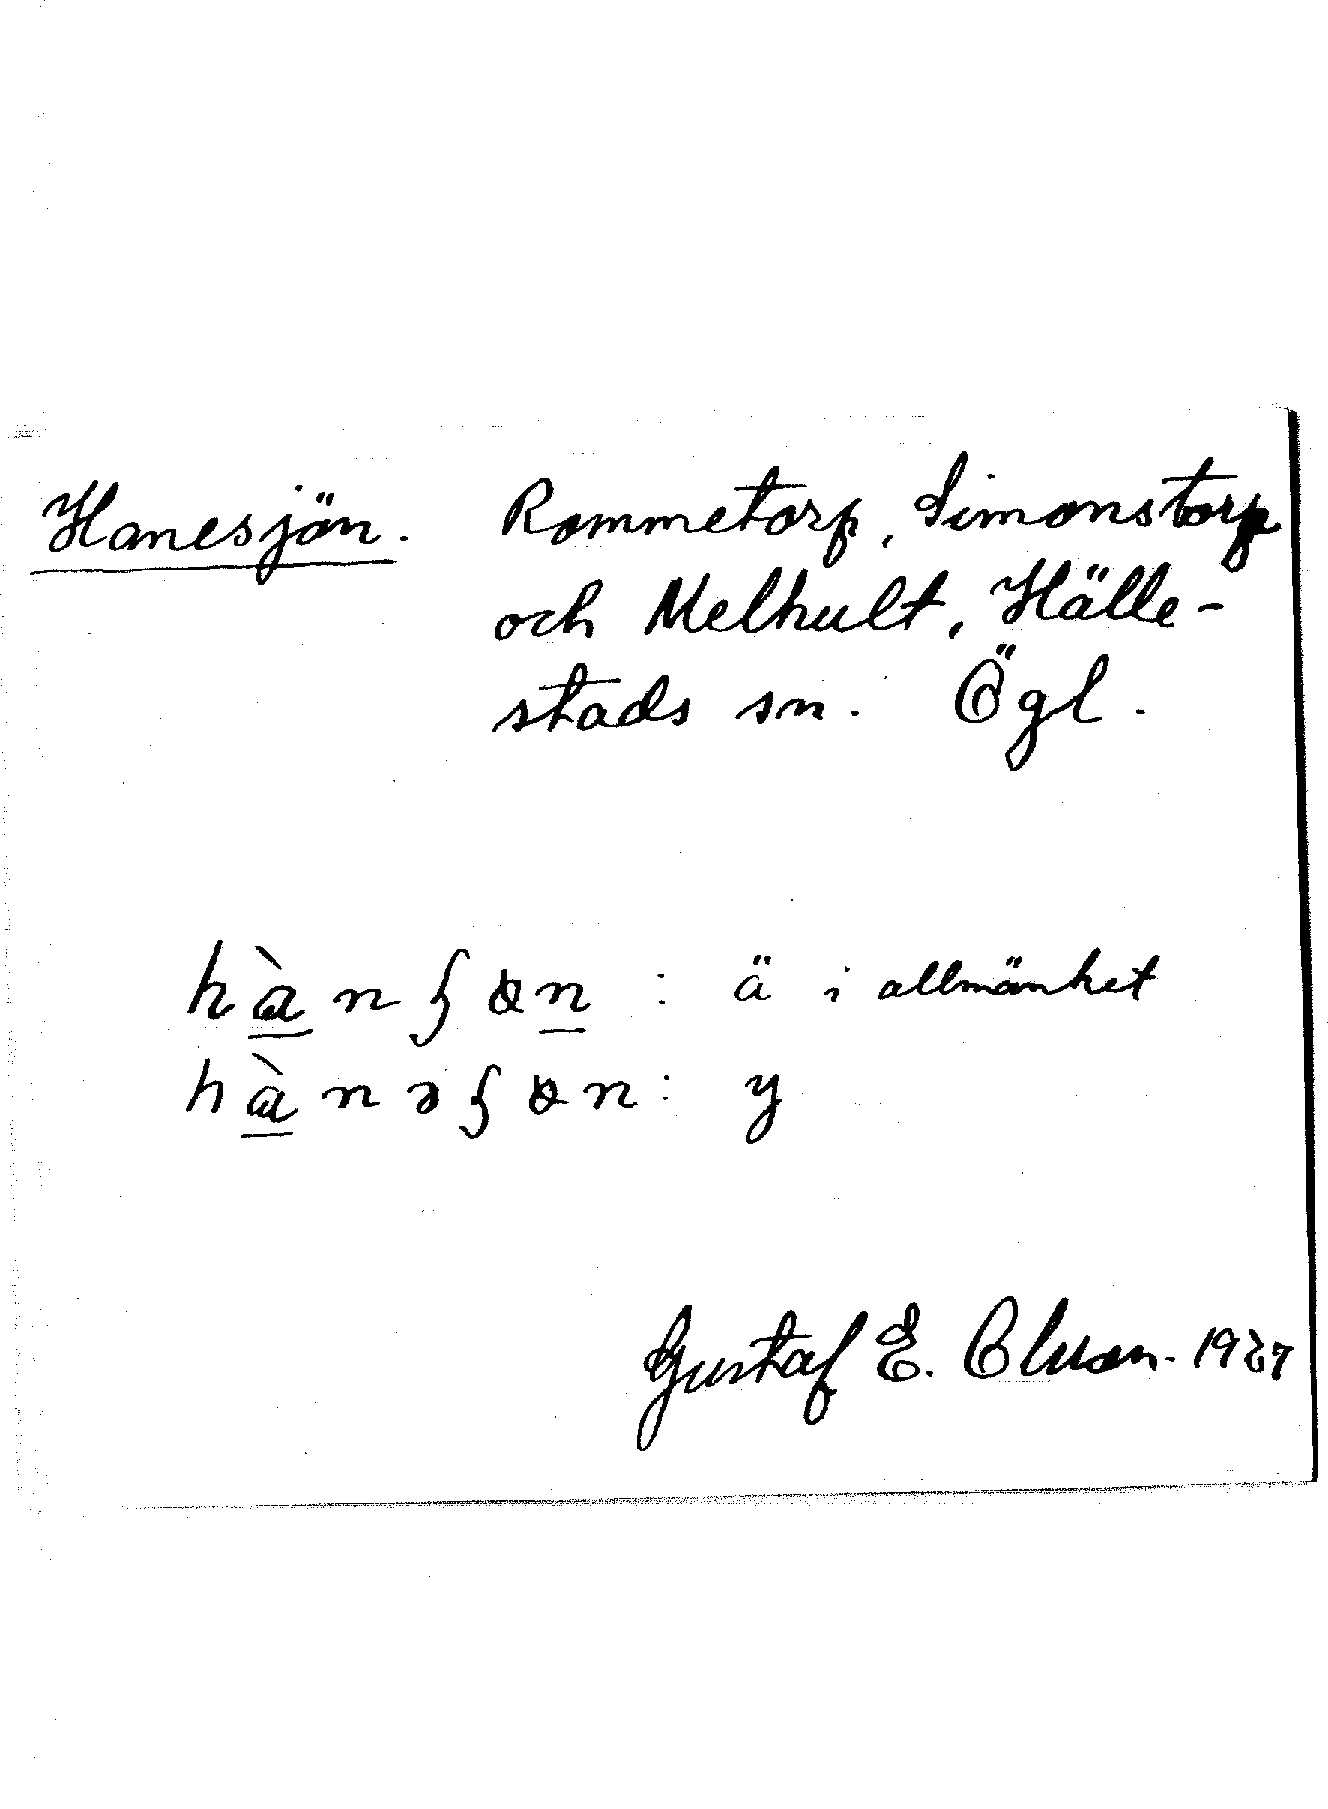 Hanesjön. Rommetorp, Simonstorp
och Melhult, Hälle-
stads sn. Ögl.
hànʃøn : ä i allmänhet
hànəʃøn : y
Gustaf E. Olsson. 1927